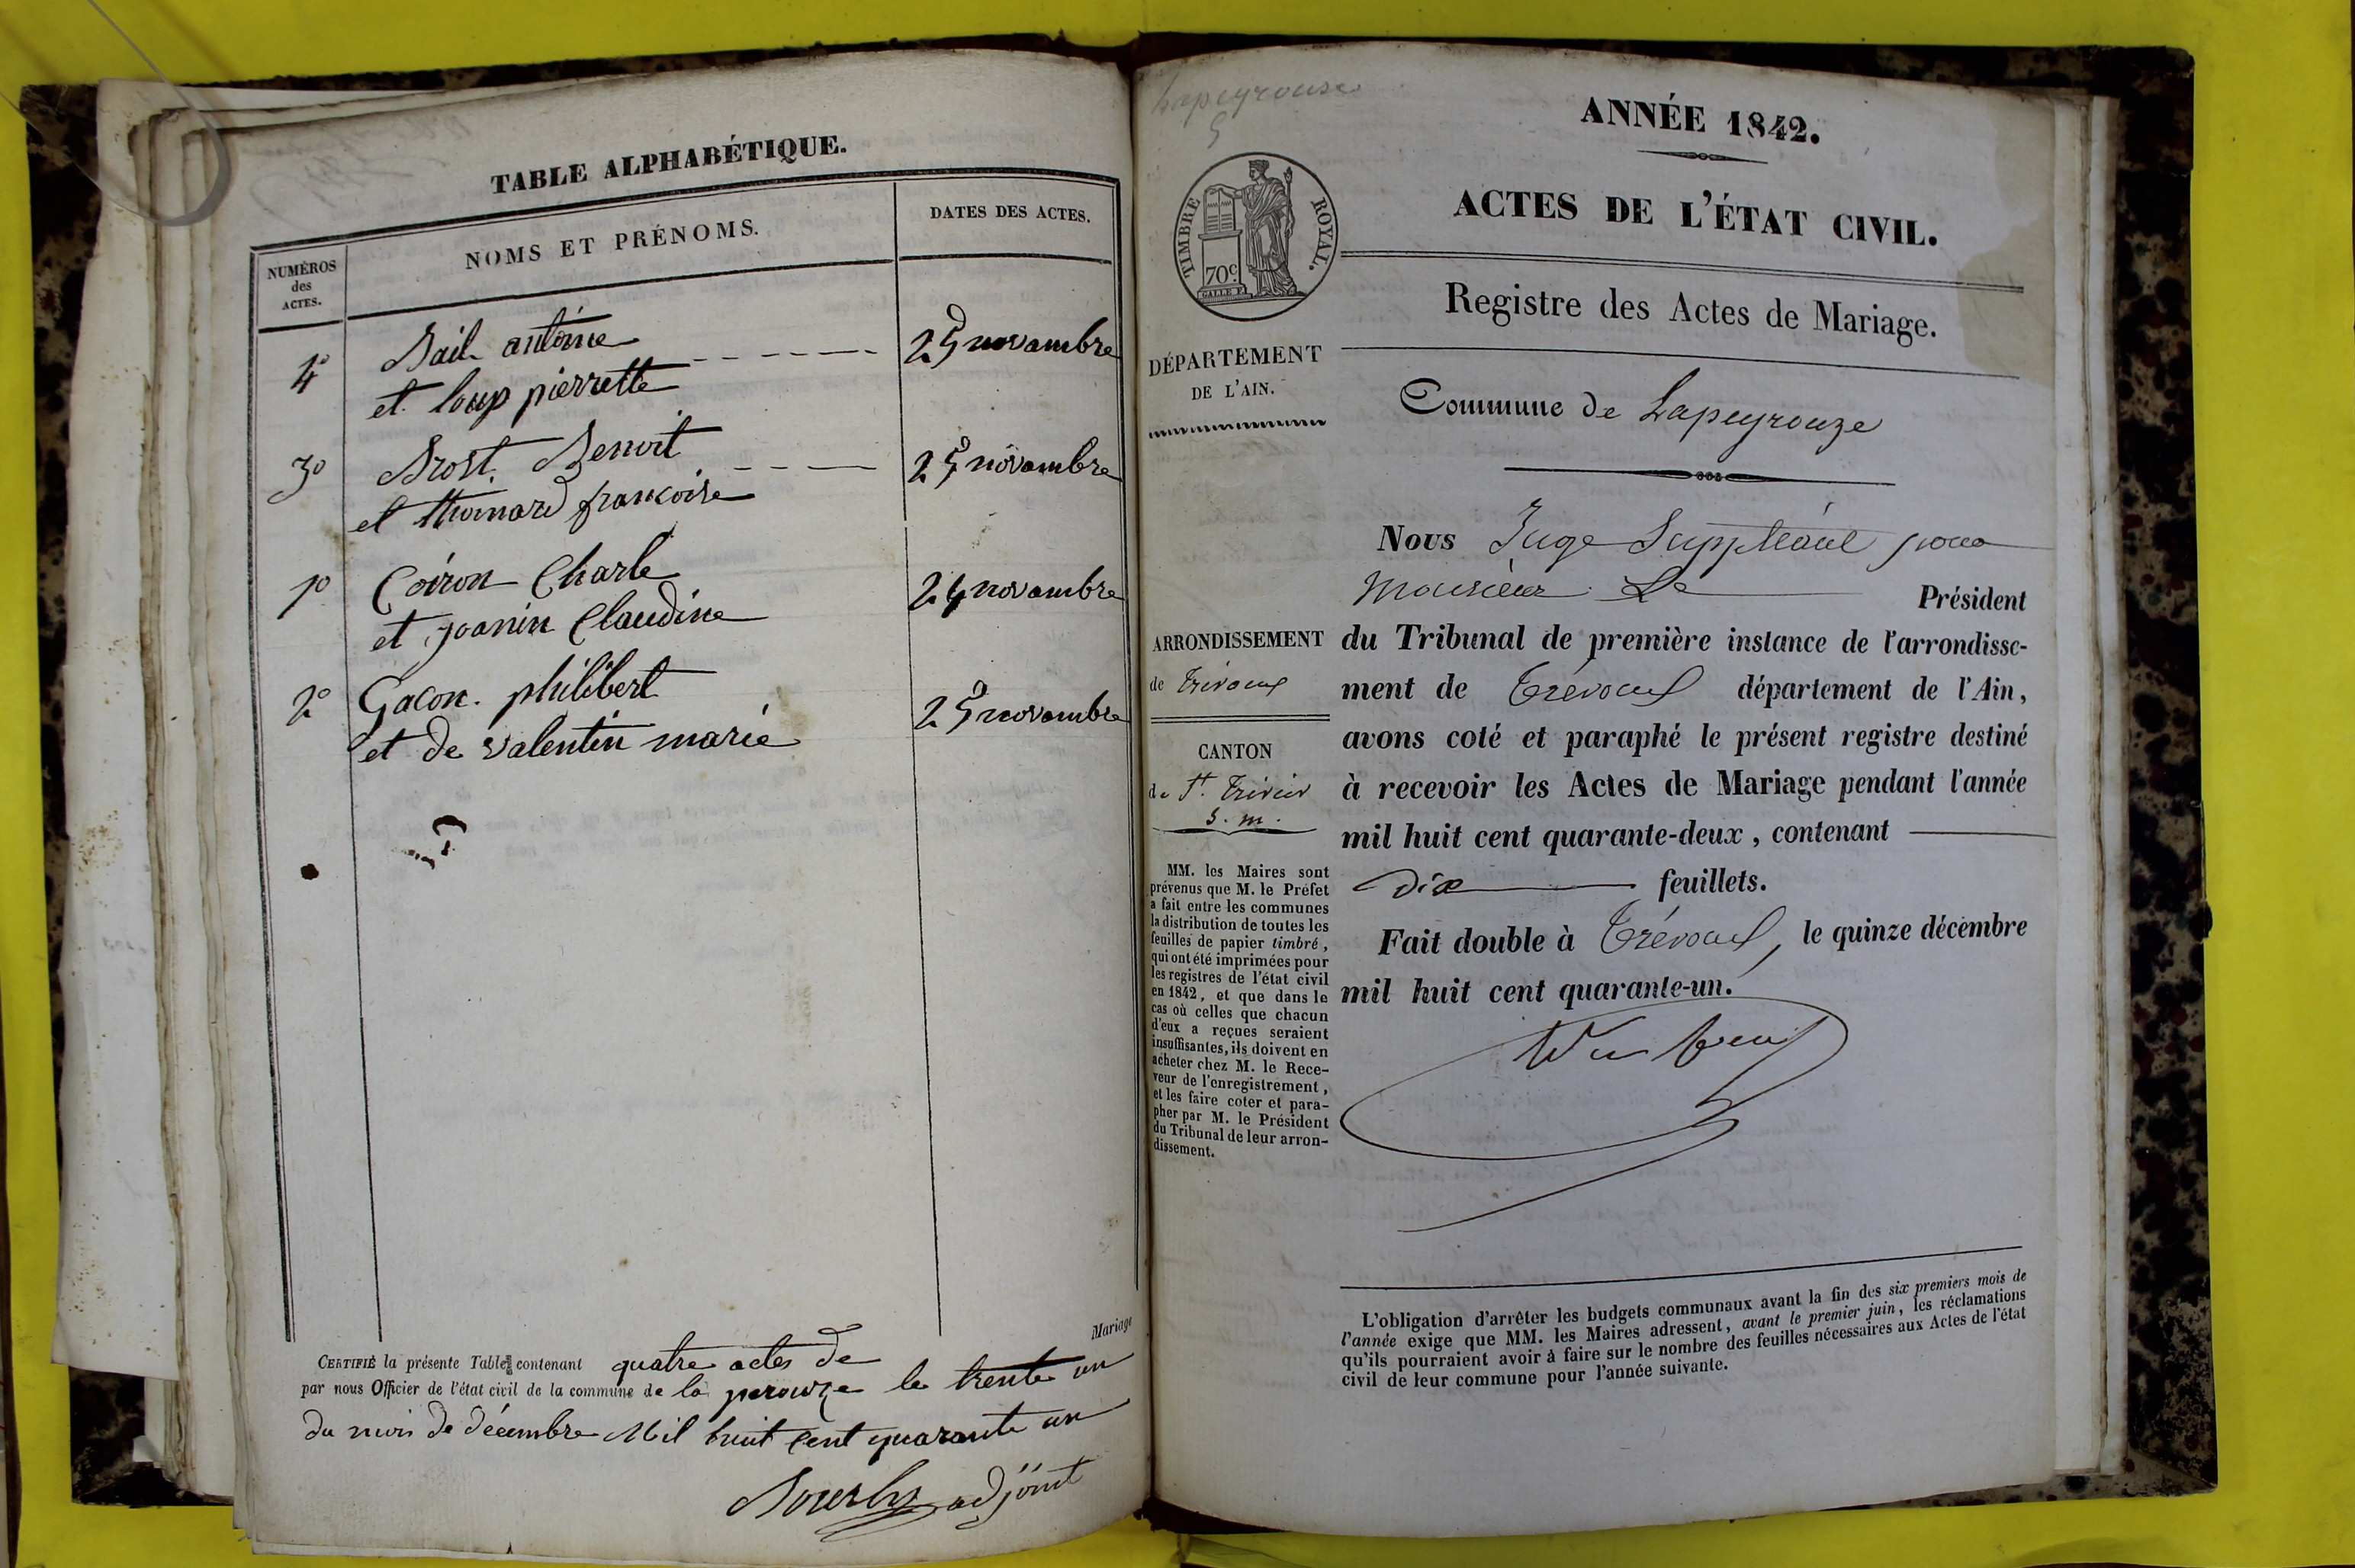 TABLE ALPHABÉTIQUE.
NUMÉROS
des
ACTES.
NOMS ET PRÉNOMS.
DATES DES ACTES.
4° Bail antoine
et loup pierrette
25 novambre
3° Brost Benoit
et thomard francoise
25 novambre
1° Coiron Charle
et joanin Claudine
24 novambre
2° Gacon philibert
et de valentin marie
25 novambre
Mariage
CERTIFIÉ la présente Table contenant quatre actes de
par nous Officier de l'état civil de la commune de la perouze le trente un
du mois de décembre Mil huit cent quarante un
adjoint
Lapeyrouse
5
ANNÉE 1842.
ACTES DE L'ÉTAT CIVIL.
TIMBRE ROYAL.
70c
GALLE F.
Registre des Actes de Mariage.
DÉPARTEMENT
DE L'AIN.
Commune de Lapeyrouze
Nous Juge Suppléant pour
Monsieur Le Président
ARRONDISSEMENT
de Trévoux
CANTON
de St. Trivier
S. m.
du Tribunal de première instance de l'arrondisse-
ment de Trévoux département de l'Ain,
avons coté et paraphé le présent registre destiné
à recevoir les Actes de Mariage pendant l'année
mil huit cent quarante-deux, contenant
dix feuillets.
Fait double à Trévoux, le quinze décembre
mil huit cent quarante-un.
MM. les Maires sont
prévenus que M. le Préfet
a fait entre les communes
la distribution de toutes les
feuilles de papier timbré,
qui ont été imprimées pour
les registres de l'état civil
en 1842, et que dans le
cas où celles que chacun
d'eux a reçues seraient
insuffisantes, ils doivent en
acheter chez M. le Rece-
veur de l'enregistrement,
et les faire coter et para-
pher par M. le Président
du Tribunal de leur arron-
dissement.
L'obligation d'arrêter les budgets communaux avant la fin des six premiers mois de
l'année exige que MM. les Maires adressent, avant le premier juin, les réclamations
qu'ils pourraient avoir à faire sur le nombre des feuilles nécessaires aux Actes de l'état
civil de leur commune pour l'année suivante.